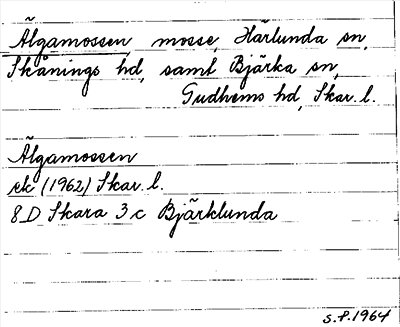 Älgamossen, mosse, Härlunda sn,
Skånings hd, samt Bjärka sn,
Gudhems hd, Skar. l.
Älgamossen
ek (1962) Skar. l.
8 D Skara 3 c Bjärklunda
S.P. 1964